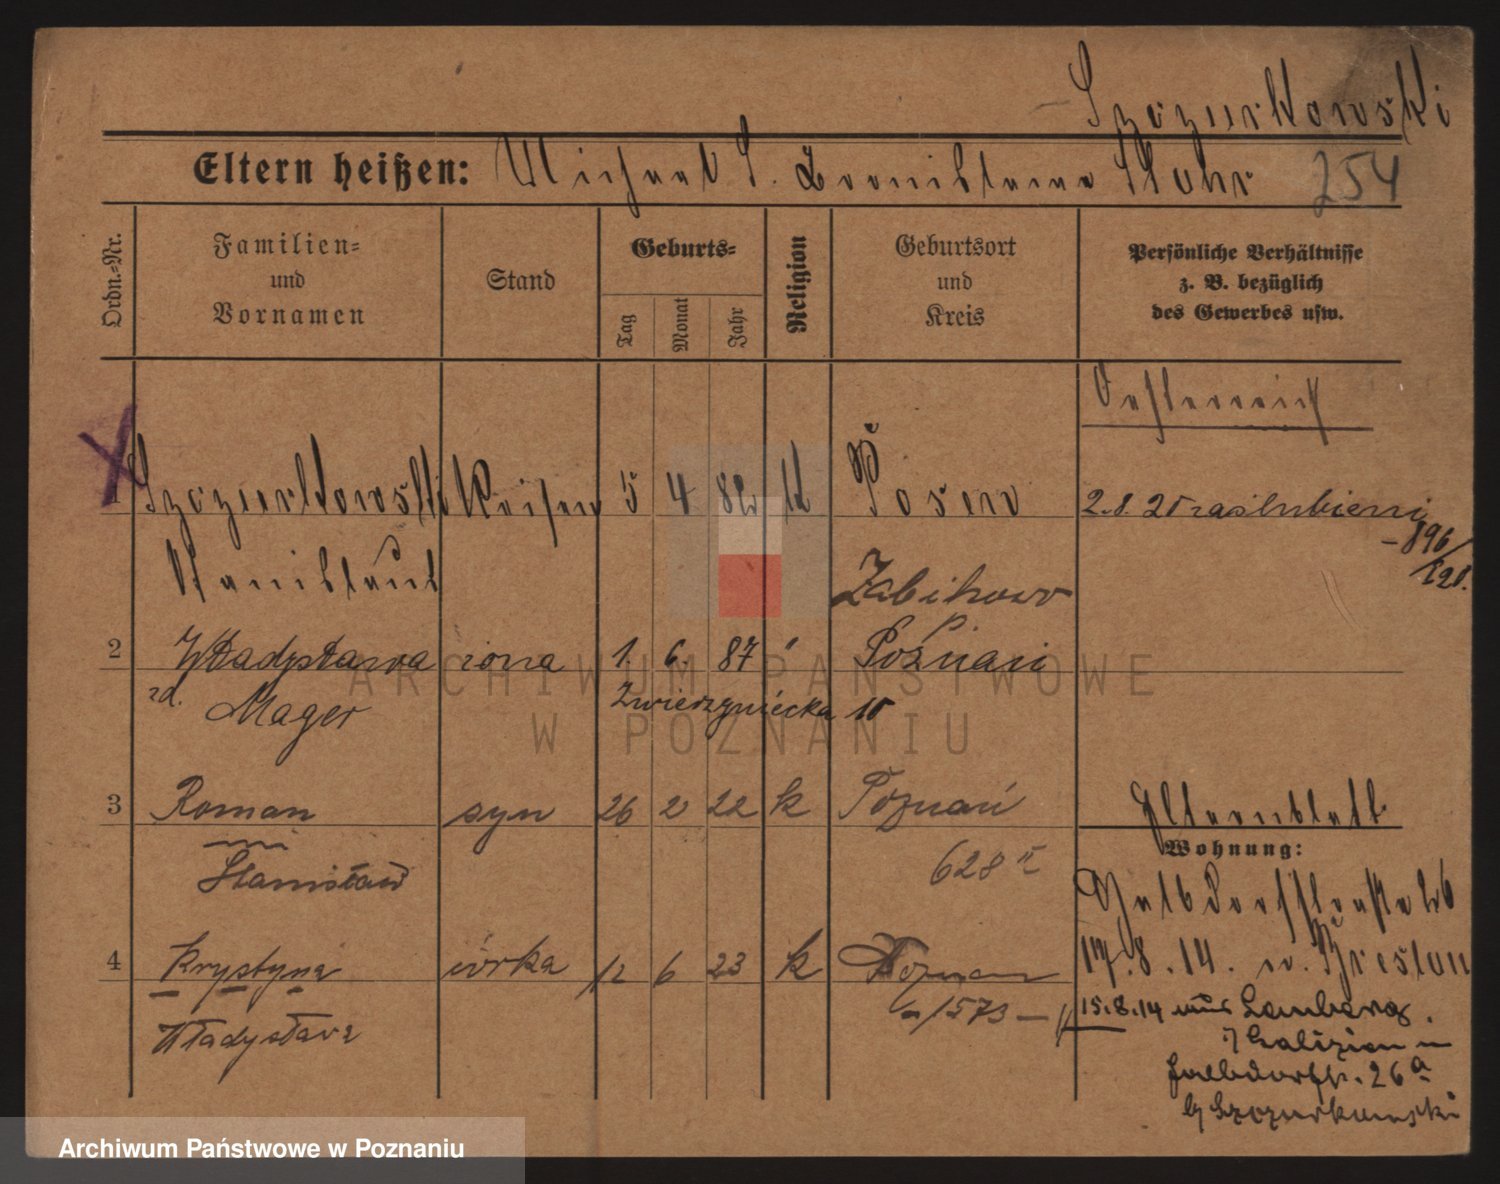 Szczurkowski
Eltern heißen: Michael S. Bronislawa Stohr 254
Ordn.-Nr.
Familien- und Vornamen
Stand
Geburts-
Tag
Monat
Jahr
Religion
Geburtsort und Kreis
Persönliche Verhältnisse z. B. bezüglich des Gewerbes usw.
Oesterreich
1 Szczurkowski 5 4 82 K Posen 2.8.25 zaślubieni
-896/
Stanislaus
Żabikowo
2 Władysława żona 1. 6. 87 Poznań
zd. Mager
Zwierzyniecka 10
3 Roman syn 26 2 22 k Poznań
Elternblatt
Stanisław
628
Wohnung:
4 Krystyna córka 12 6 23 k Poznań
17.8.14. n. Breslau
Władysława
1573
15.8.14 aus Lemberg
Galizien n
26a
b/ Szczurkowski
ARCHIWUM PAŃSTWOWE
W POZNANIU
Archiwum Państwowe w Poznaniu